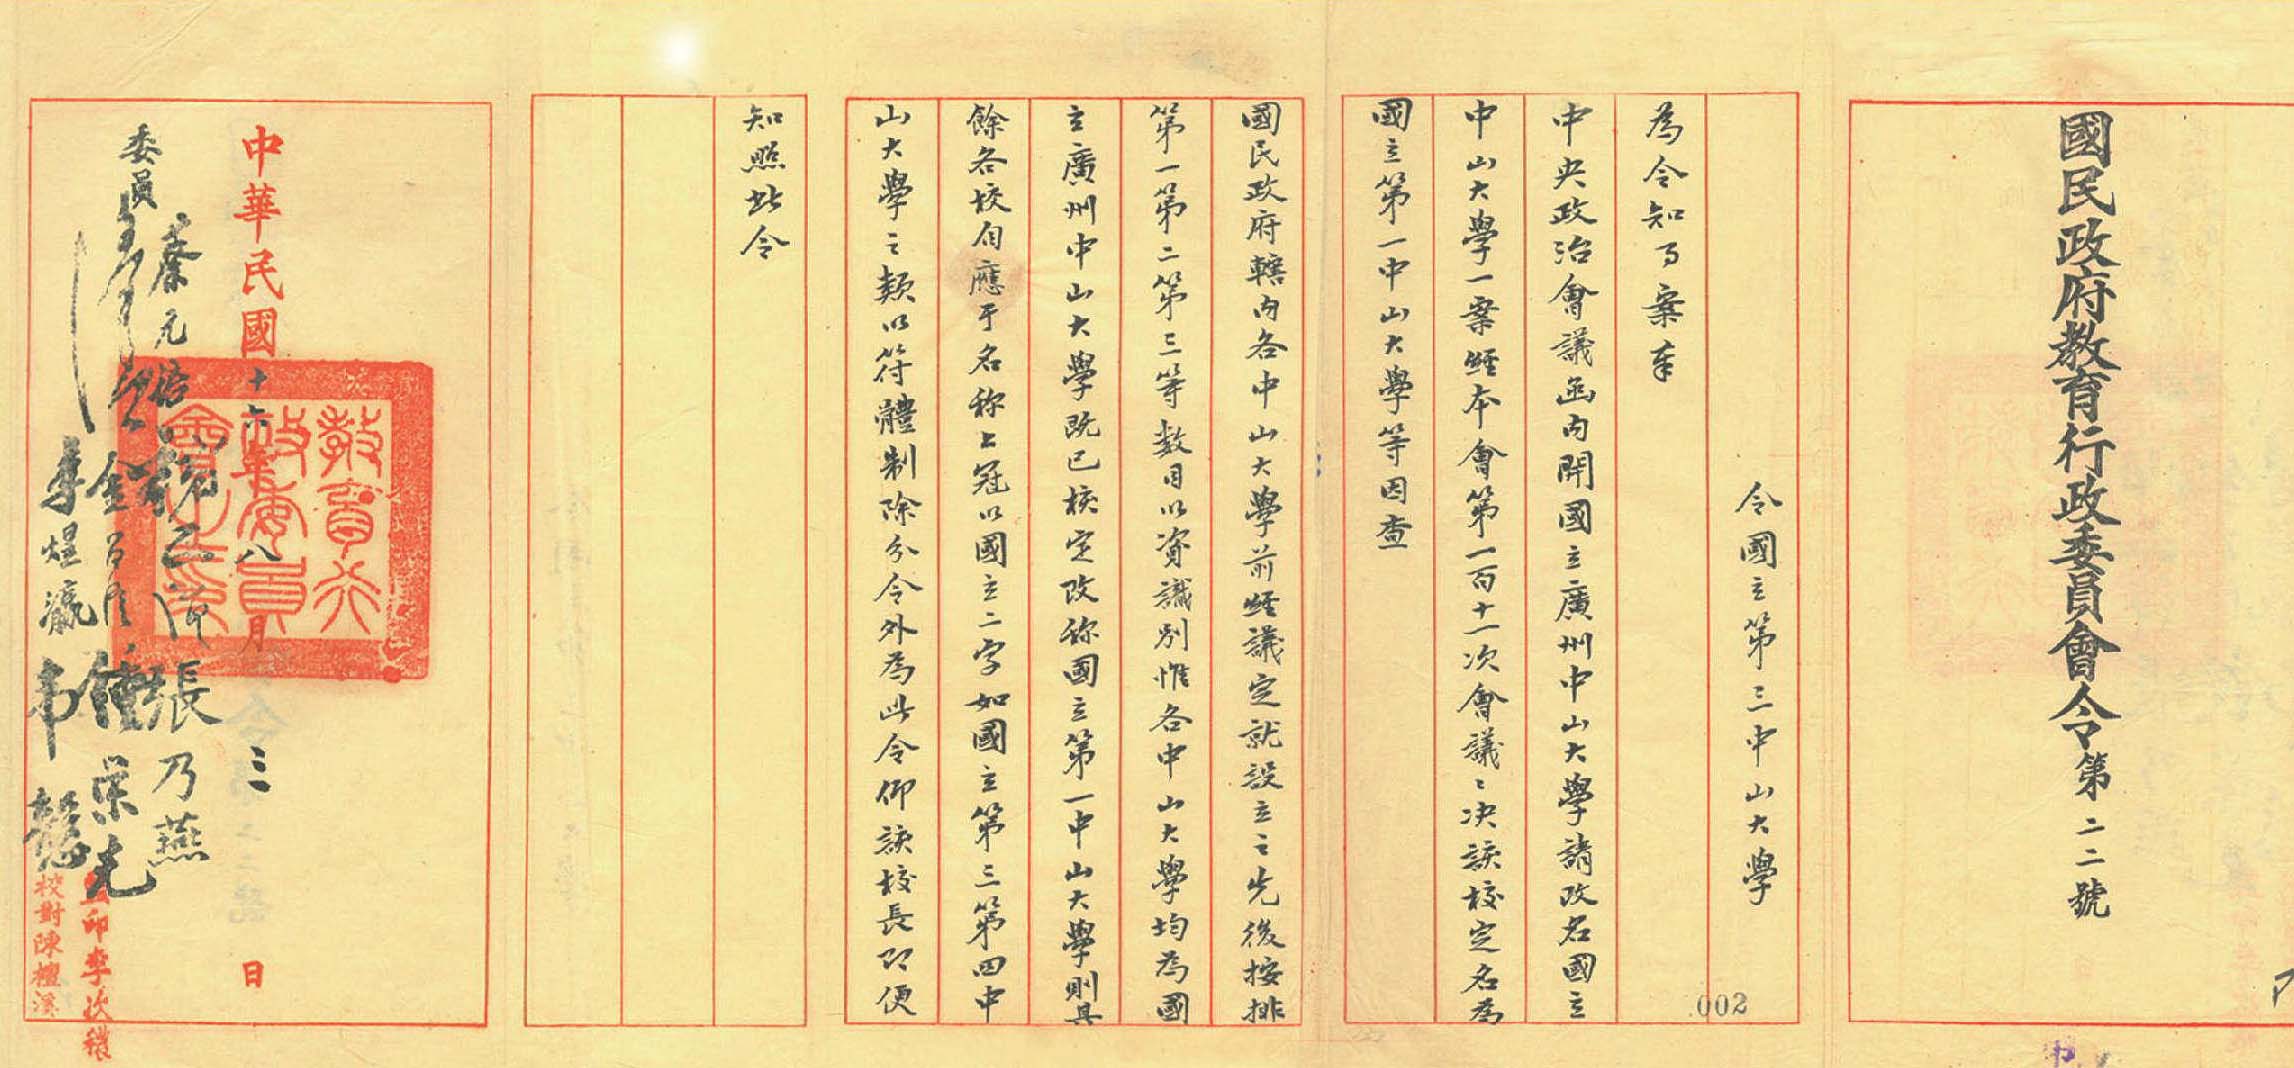 國民政府教育行政委員會令第二二號
令國立第三中山大學
為令知事案奉
中央政治會議函內開國立廣州中山大學請改名國立
中山大學一案經本會第一百十一次會議〻決議校定名為
國立第一中山大學等因查
國民政府轄內各中山大學前經議定就設立之先後按排
第一第二第三等數目以資識別惟各中山大學均為國
立廣州中山大學既已核定改称國立第一中山大學則其
餘各校自應于名称上冠以國立二字如國立第三第四中
山大學之類以符體制除分令外為此令仰該校長即便
知照此令
中華民國十六年八月三日
委員
蔡元培
張乃燕
金曾澄
鍾榮光
李煜瀛
韋慤
監印李次積
校對陳檀溪
教育行政委員會之印
002